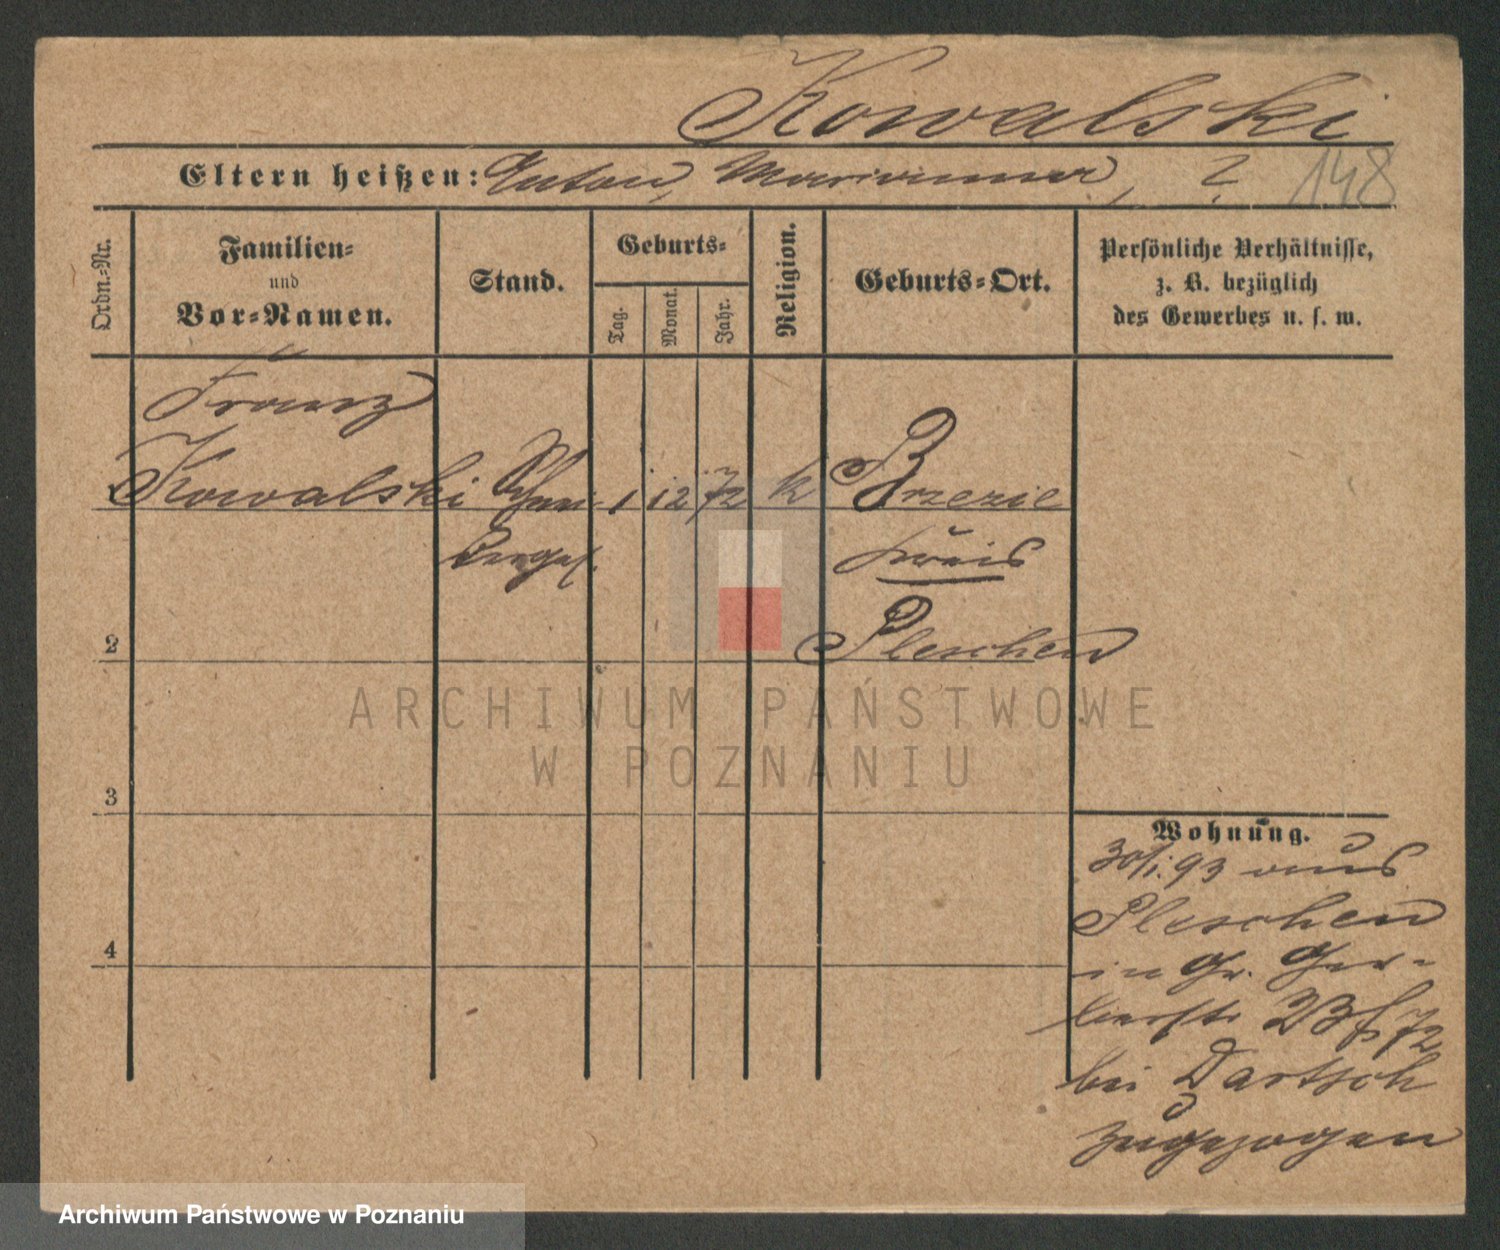 Kowalski
Eltern heißen: Anton, Marianna, ? 148
Ordn.-Nr.
Familien-
und
Vor-Namen.
Stand.
Geburts-
Tag.
Monat.
Jahr.
Religion.
Geburts-Ort.
Persönliche Verhältnisse,
z. B. bezüglich
des Gewerbes u. s. w.
Franz
Kowalski Schnei- 1 12 72 k Brzezie
derges. Kreis
2 Pleschen
3
4
Wohnung.
30/1. 93 aus
Pleschen
in Gr. Ger-
berstr 23
bei Dartsch
zugezogen
ARCHIWUM PAŃSTWOWE
W POZNANIU
Archiwum Państwowe w Poznaniu